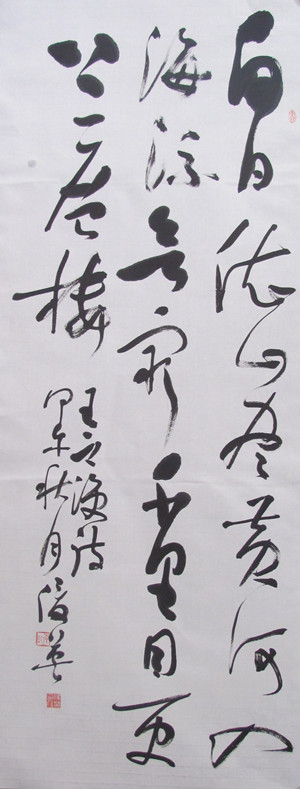 白日依山尽黄河入
海流欲穷千里目更
上一层楼
王之涣诗
秋月